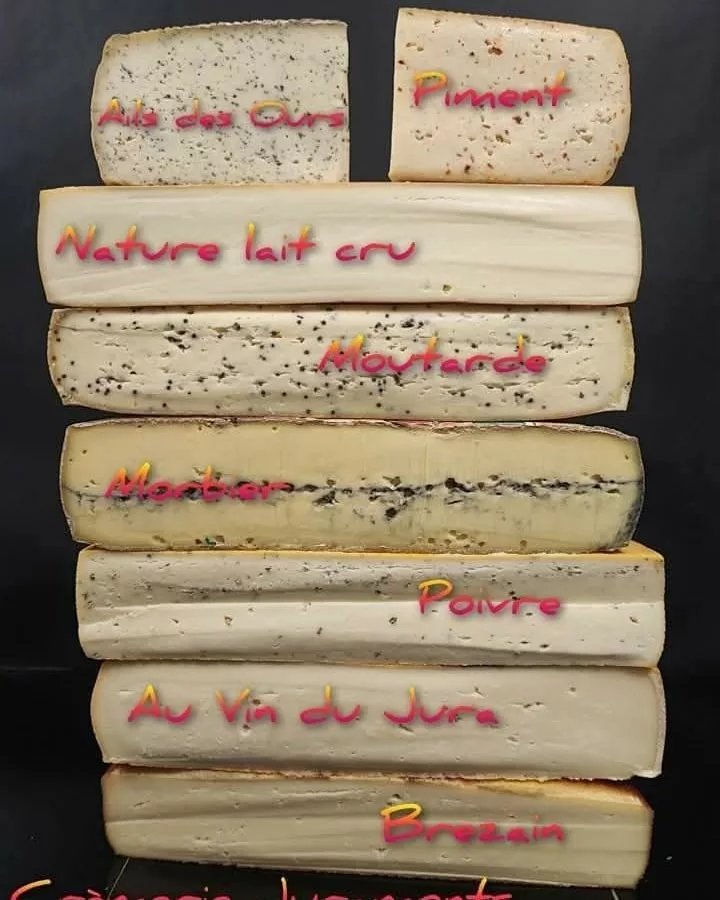 Ails des Ours
Piment
Nature lait cru
Moutarde
Morbier
Poivre
Au Vin du Jura
Brezain